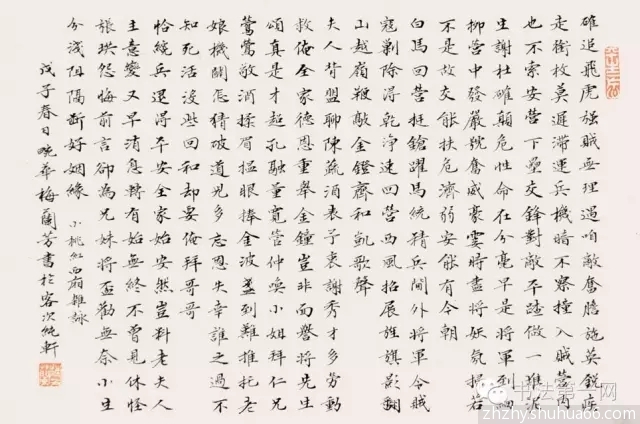 確追飛虎強賊無理過咱敵奮膽施英銳疾
走銜枚莫遲滯運兵機暗不察撞入賊營內
也不索安營下壘交鋒對敵平踏做一堆泥
生謝杜確顛危性命在分毫早是將軍到細
柳營中發嚴號奮威豪霎時盡將妖氛掃若
不是故交能扶危濟弱安能有今朝
白馬回營挺鎗躍馬統精兵閫外將軍令賊
寇剿除得乾淨速回營西風招展旌旗影翻
山越嶺鞭敲金鐙齊和凱歌聲
夫人背盟聊陳蔬酒表予衷謝秀才多勞動
救俺全家德恩重舉金鐘豈非而譽將先生
頌真是才超孔融量寬管仲喚小姐拜仁兄
鶯鶯敬酒揉眉搵眼捧金波盞到難推托老
娘機關怎猜破道兄多忘恩失幸誰之過不
知死活沒些回和却要俺拜哥哥
恰纔兵退得平安全家始安然豈料老夫人
主意變又早消息轉有始無終不曾見休怪
張珙怨悔前言卻為兄妹將盃勸無奈小生
分淺阻隔斷好姻緣 小桃紅西廂雜詠
戊子春日晚華梅蘭芳書於客次純軒
书法第一网
zhzhy.shuhua66.com